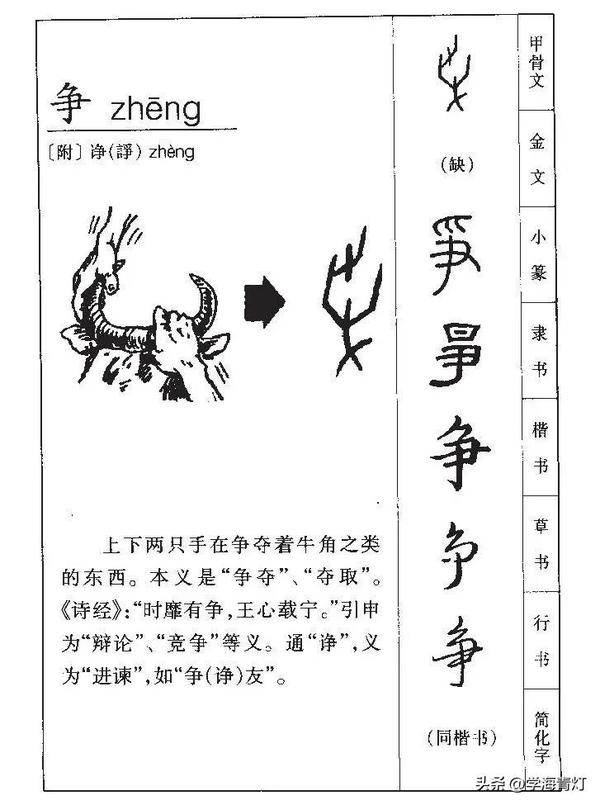 争 zhēng
〔附〕诤(諍) zhèng
上下两只手在争夺着牛角之类
的东西。本义是“争夺”、“夺取”。
《诗经》:“时靡有争,王心载宁。”引申
为“辩论”、“竞争”等义。通“诤”,义
为“进谏”,如“争(诤)友”。
(缺)
爭
爭
争
争
争
(同楷书)
甲骨文
金文
小篆
隶书
楷书
草书
行书
简化字
头条@学海青灯